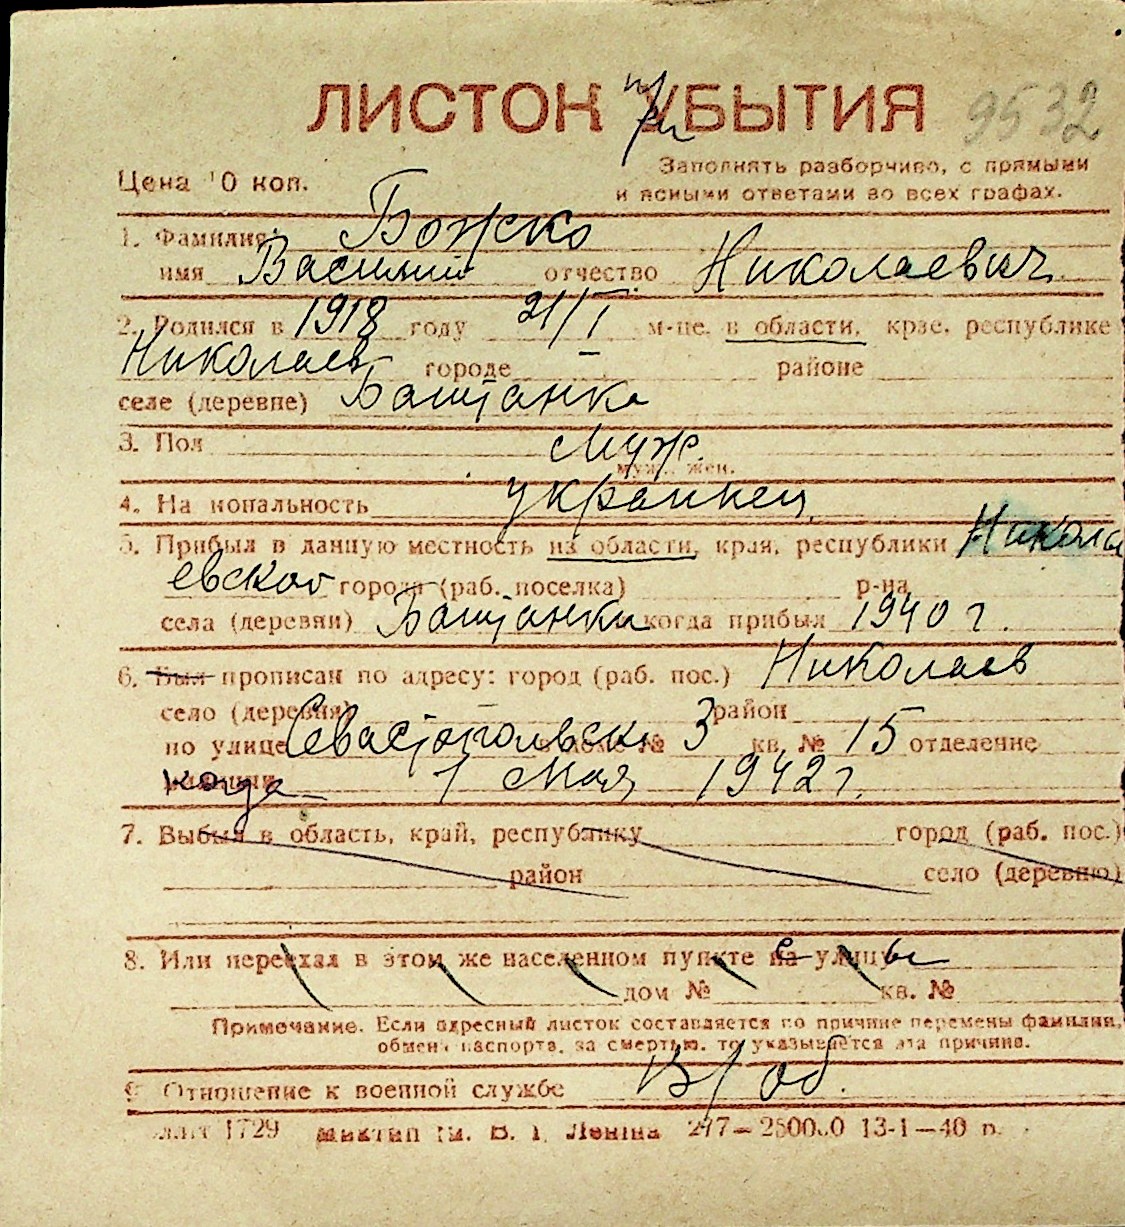 ЛИСТОК при УБЫТИЯ 9532
Заполнять разборчиво, с прямыми
Цена 10 коп. и ясными ответами во всех графах.
1. Фамилия Божко
имя Василий отчество Николаевич
2. Родился в 1918 году 21/I м-це. в области, крае, республике
Николаев городе — районе
селе (деревне) Баштанка
3. Пол муж.
муж., жен.
4. Национальность украинец
5. Прибыл в данную местность из области, края, республики Никола
евской города (раб. поселка) р-на
села (деревни) Баштанки когда прибыл 1940 г.
6. Был прописан по адресу: город (раб. пос.) Николаев
село (деревня) — район
по улице Севастопольск. доме № 3 кв. № 15 отделение
когда 1 мая 1942 г.
7. Выбыл в область, край, республику город (раб. пос.)
район село (деревню)
8. Или переехал в этом же населенном пункте с на улицы
дом № кв. №
Примечание. Если адресный листок составляется по причине перемены фамилии,
обмена паспорта, за смертью, то указывается эта причина.
9. Отношение к военной службе в/об.
1729 ім. В. І. Леніна 277—250000 13-1—40 р.